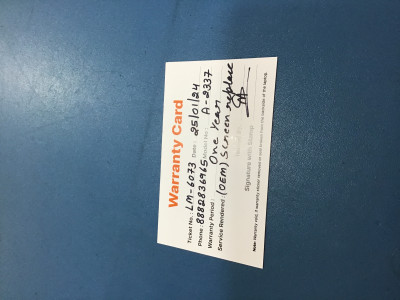 Warranty Card
Ticket No.: LM-6073 Date: 25/01/24
Phone: 8882836965 Model No.: A-2337
Warranty Period: One Year
Service Rendered: (OEM) Screen replace
Signature with Stamp
Note: Warranty void, if warranty sticker removed